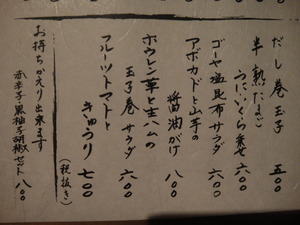 だし巻玉子 五〇〇
半熟たまご
うにいくら乗せ 六〇〇
ゴーヤ塩昆布サラダ 六〇〇
アボカドと山芋の
醤油がけ 八〇〇
ホウレン草と生ハムの
玉子巻サラダ 六〇〇
フルーツトマトと
きゅうり 七〇〇
(税抜き)
お持ちかえり出来ます
赤辛子・黒柚子胡椒セット 八〇〇